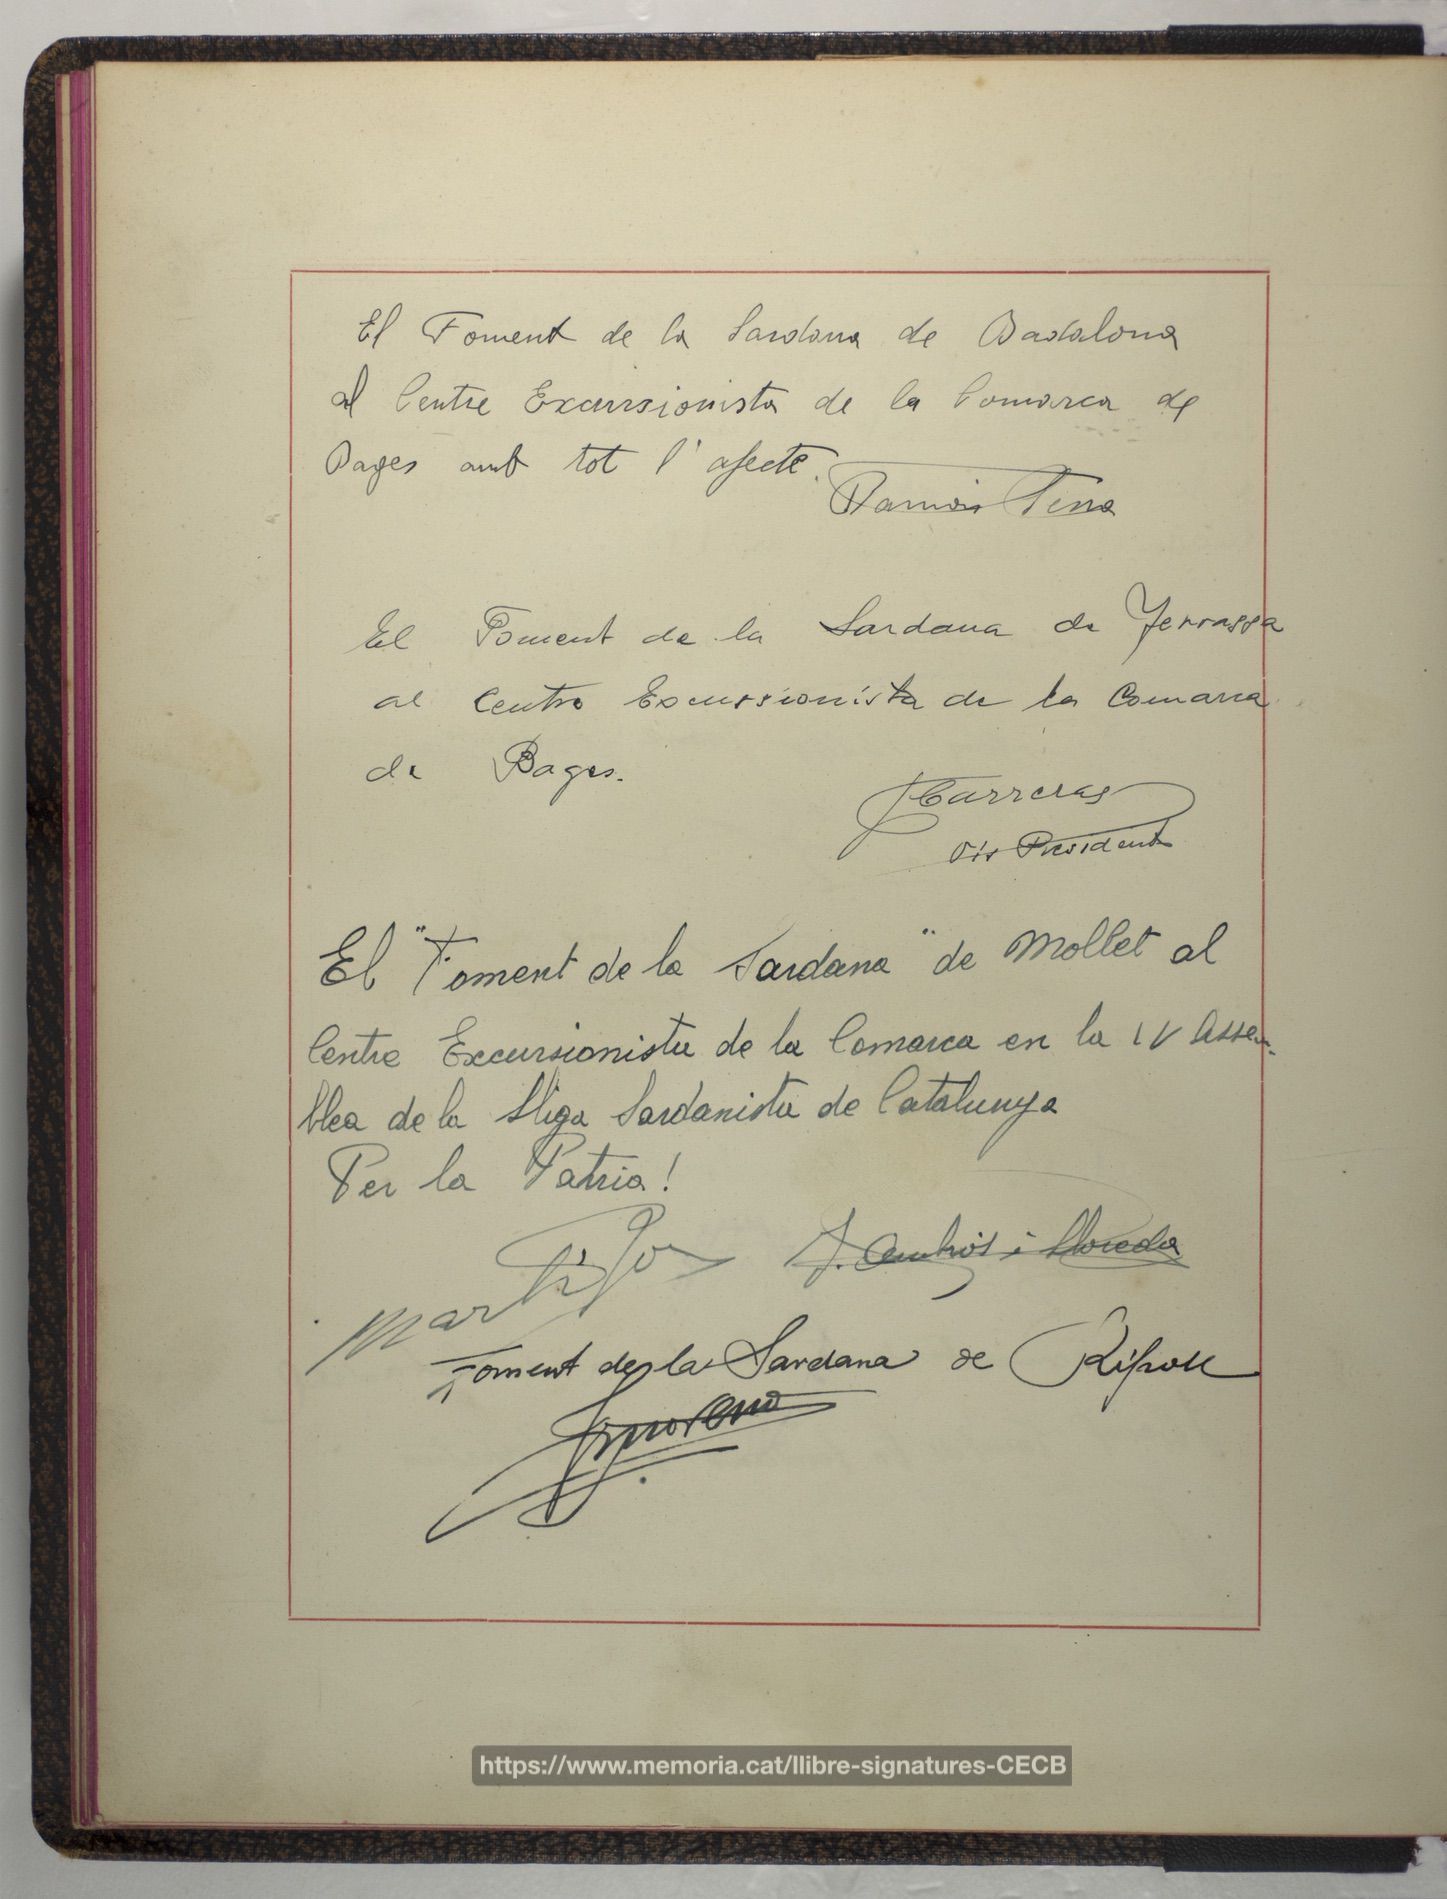 El Foment de la Sardana de Badalona
al Centre Excursionista de la Comarca de
Bages amb tot l'afecte.
Ramón
El Foment de la Sardana de Terrassa
al Centre Excurssionista de la Comarca
de Bages.
Carreras
Vis President
El "Foment de la Sardana" de Mollet al
Centre Excursionista de la Comarca en la IV Assem-
blea de la Lliga Sardanista de Catalunya
Per la Patria!
J. Ambrós i Lloreda
Martí
Foment de la Sardana de Ripoll
https://www.memoria.cat/llibre-signatures-CECB